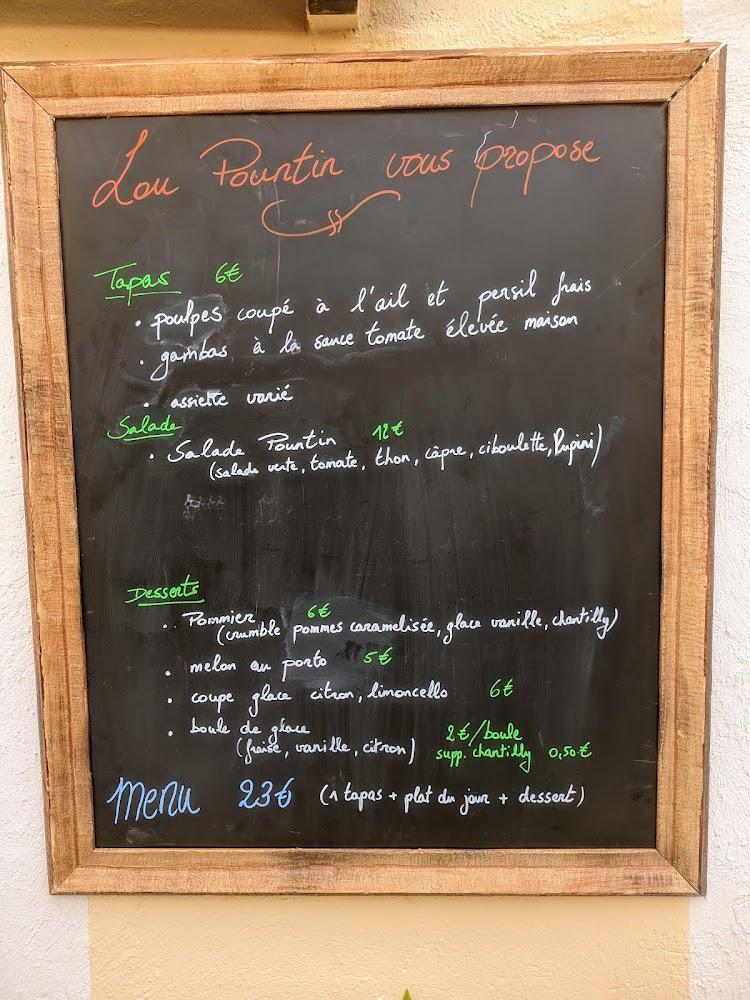 Lou Pountin vous propose
Tapas 6€
• poulpes coupé à l'ail et persil frais
• gambas à la sauce tomate élevée maison
• assiette varié
Salade
• Salade Pountin 12€
(salade verte, tomate, thon, câpre, ciboulette, Rupini)
Desserts
• Pommier 6€
(crumble pommes caramelisée, glace vanille, chantilly)
• melon au porto 5€
• coupe glace citron, limoncello 6€
• boule de glace 2€/boule
(fraise, vanille, citron) supp. chantilly 0,50€
Menu 23€ (1 tapas + plat du jour + dessert)